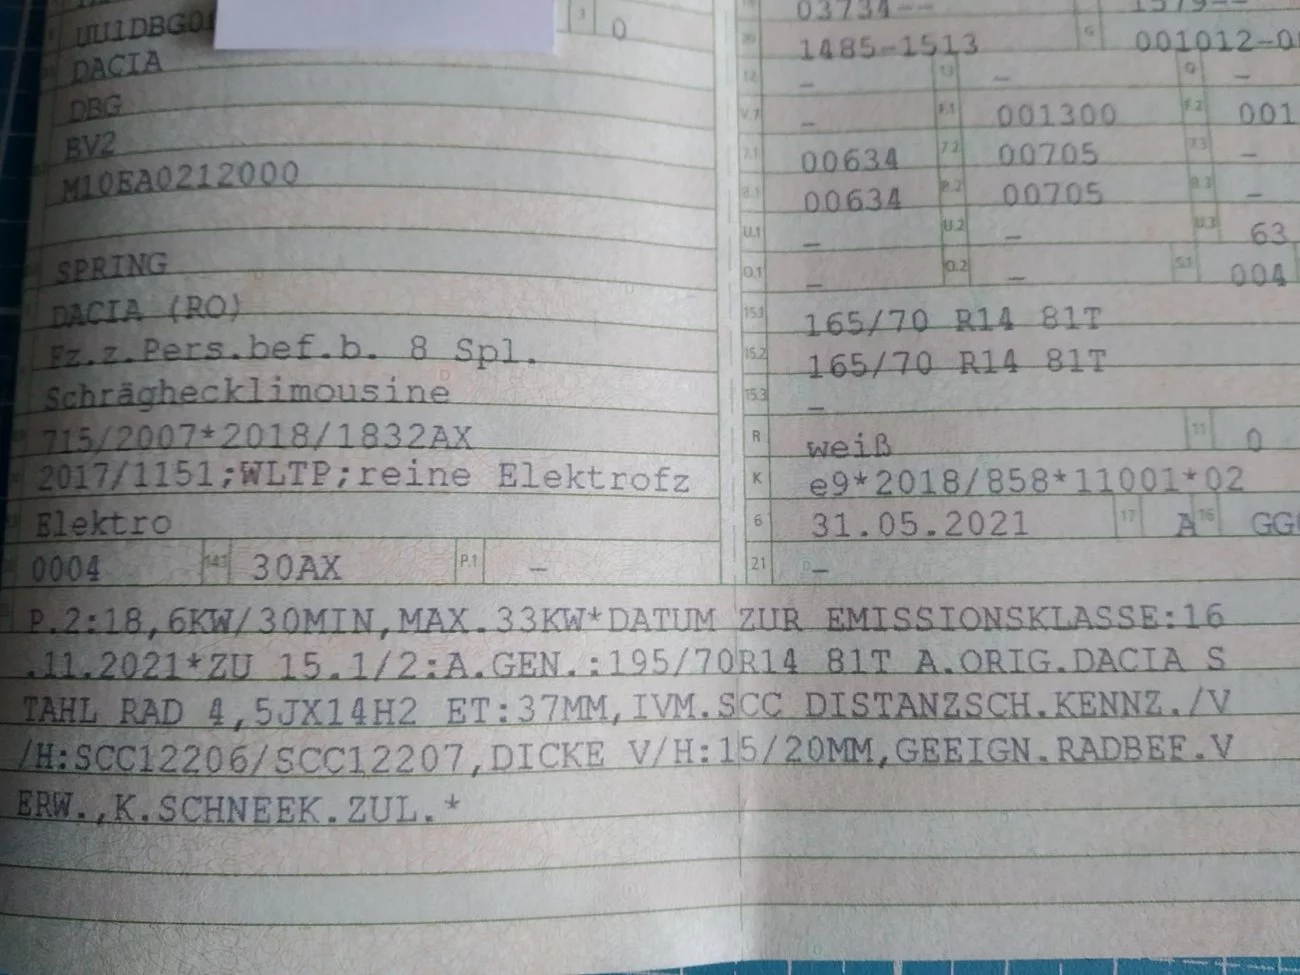 UU1DBG0
3
0
DACIA
DBG
BV2
M10EA0212000
SPRING
DACIA (RO)
Fz.z.Pers.bef.b. 8 Spl.
Schräghecklimousine
715/2007*2018/1832AX
2017/1151;WLTP;reine Elektrofz
Elektro
0004 14.1 30AX P.1 –
03734-- 1579--
20 1485-1513 G 001012-0
12 – 13 – Q –
V.7 – F.1 001300 F.2 001
7.1 00634 7.2 00705 7.3 –
8.1 00634 8.2 00705 8.3 –
U.1 – U.2 – U.3 63
O.1 – O.2 – S.1 004
15.1 165/70 R14 81T
15.2 165/70 R14 81T
15.3 –
R weiß 11 0
K e9*2018/858*11001*02
6 31.05.2021 17 A 16 GG
21 –
P.2:18,6KW/30MIN,MAX.33KW*DATUM ZUR EMISSIONSKLASSE:16
.11.2021*ZU 15.1/2:A.GEN.:195/70R14 81T A.ORIG.DACIA S
TAHL RAD 4,5JX14H2 ET:37MM,IVM.SCC DISTANZSCH.KENNZ./V
/H:SCC12206/SCC12207,DICKE V/H:15/20MM,GEEIGN.RADBEF.V
ERW.,K.SCHNEEK.ZUL.*